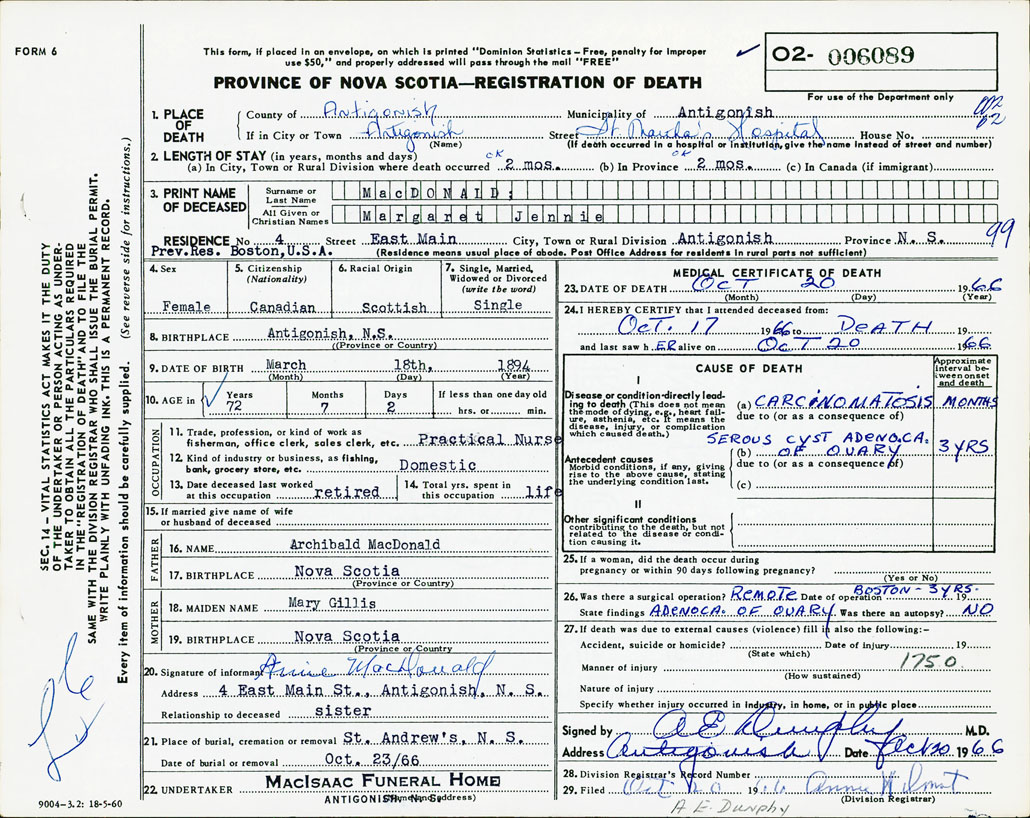 FORM 6
This form, if placed in an envelope, on which is printed "Dominion Statistics – Free, penalty for improper
use $50," and properly addressed will pass through the mail "FREE"
✓ 02- 006089
For use of the Department only
PROVINCE OF NOVA SCOTIA—REGISTRATION OF DEATH
1. PLACE OF DEATH
County of Antigonish Municipality of Antigonish
If in City or Town Antigonish Street St. Martha's Hospital House No.
(Name) (If death occurred in a hospital or institution, give the name instead of street and number)
2. LENGTH OF STAY (in years, months and days)
(a) In City, Town or Rural Division where death occurred 2 mos. (b) In Province 2 mos. (c) In Canada (if immigrant)
3. PRINT NAME OF DECEASED
Surname or Last Name MacDONALD;
All Given or Christian Names Margaret Jennie
RESIDENCE No 4 Street East Main City, Town or Rural Division Antigonish Province N. S. 99
Prev.Res. Boston, U.S.A. (Residence means usual place of abode. Post Office Address for residents in rural parts not sufficient)
4. Sex
Female
5. Citizenship (Nationality)
Canadian
6. Racial Origin
Scottish
7. Single, Married, Widowed or Divorced (write the word)
Single
8. BIRTHPLACE Antigonish, N.S.
(Province or Country)
9. DATE OF BIRTH March 18th, 1894
(Month) (Day) (Year)
10. AGE in Years 72 Months 7 Days 2 If less than one day old hrs. or min.
OCCUPATION
11. Trade, profession, or kind of work as fisherman, office clerk, sales clerk, etc. Practical Nurse
12. Kind of industry or business, as fishing, bank, grocery store, etc. Domestic
13. Date deceased last worked at this occupation retired
14. Total yrs. spent in this occupation life
15. If married give name of wife or husband of deceased
FATHER
16. NAME Archibald MacDonald
17. BIRTHPLACE Nova Scotia
(Province or Country)
MOTHER
18. MAIDEN NAME Mary Gillis
19. BIRTHPLACE Nova Scotia
(Province or Country)
20. Signature of informant Annie MacDonald
Address 4 East Main St., Antigonish, N. S.
Relationship to deceased sister
21. Place of burial, cremation or removal St. Andrew's, N. S.
Date of burial or removal Oct. 23/66
22. UNDERTAKER MacIsaac Funeral Home
ANTIGONISH, N. S.
(Name and address)
9004–3.2: 18-5-60
MEDICAL CERTIFICATE OF DEATH
23. DATE OF DEATH Oct 20 1966
(Month) (Day) (Year)
24. I HEREBY CERTIFY that I attended deceased from:
Oct. 17 1966 to DEATH 19
and last saw h ER alive on Oct 20 1966
CAUSE OF DEATH
Approximate interval between onset and death
I
Disease or condition directly leading to death (This does not mean the mode of dying, e.g., heart failure, asthenia, etc. It means the disease, injury, or complication which caused death.)
(a) CARCINOMATOSIS MONTHS
due to (or as a consequence of)
SEROUS CYST ADENOCA.
(b) OF OVARY 3 YRS
due to (or as a consequence of)
(c)
Antecedent causes
Morbid conditions, if any, giving rise to the above cause, stating the underlying condition last.
II
Other significant conditions
contributing to the death, but not related to the disease or condition causing it.
25. If a woman, did the death occur during pregnancy or within 90 days following pregnancy?
(Yes or No)
26. Was there a surgical operation? REMOTE Date of operation BOSTON - 3 YRS. 19
State findings ADENOCA. OF OVARY Was there an autopsy? NO
27. If death was due to external causes (violence) fill in also the following:–
Accident, suicide or homicide? Date of injury 19
(State which)
Manner of injury 1750
(How sustained)
Nature of injury
Specify whether injury occurred in Industry, in home, or in public place
Signed by A E Dunphy M.D.
Address Antigonish Date Oct 20 1966
28. Division Registrar's Record Number
29. Filed Oct 20 1966
(Division Registrar)
A. E. Dunphy
SEC. 14 – VITAL STATISTICS ACT MAKES IT THE DUTY
OF THE UNDERTAKER OR PERSON ACTING AS UNDER-
TAKER TO OBTAIN ALL THE PARTICULARS REQUIRED
IN THE "REGISTRATION OF DEATH" AND TO FILE THE
SAME WITH THE DIVISION REGISTRAR WHO SHALL ISSUE THE BURIAL PERMIT.
WRITE PLAINLY WITH UNFADING INK. THIS IS A PERMANENT RECORD.
Every item of information should be carefully supplied. (See reverse side for instructions.)